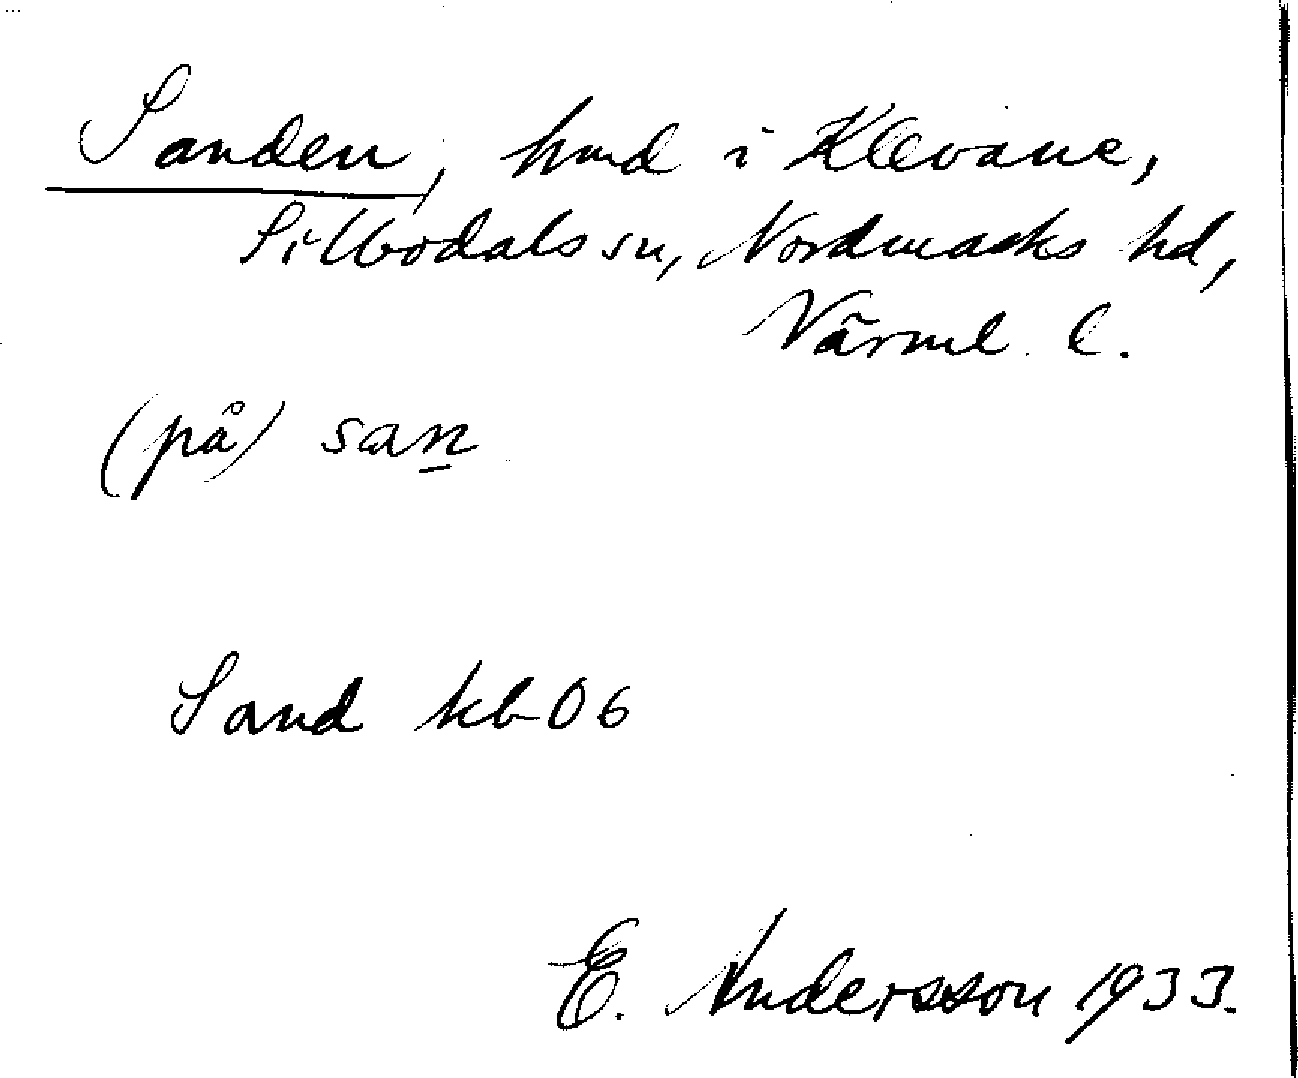 Sanden, hmd i Klevane,
Silbodals sn, Nordmarks hd,
Värml. l.
(på) san
Sand kb 06
E. Andersson 1933.